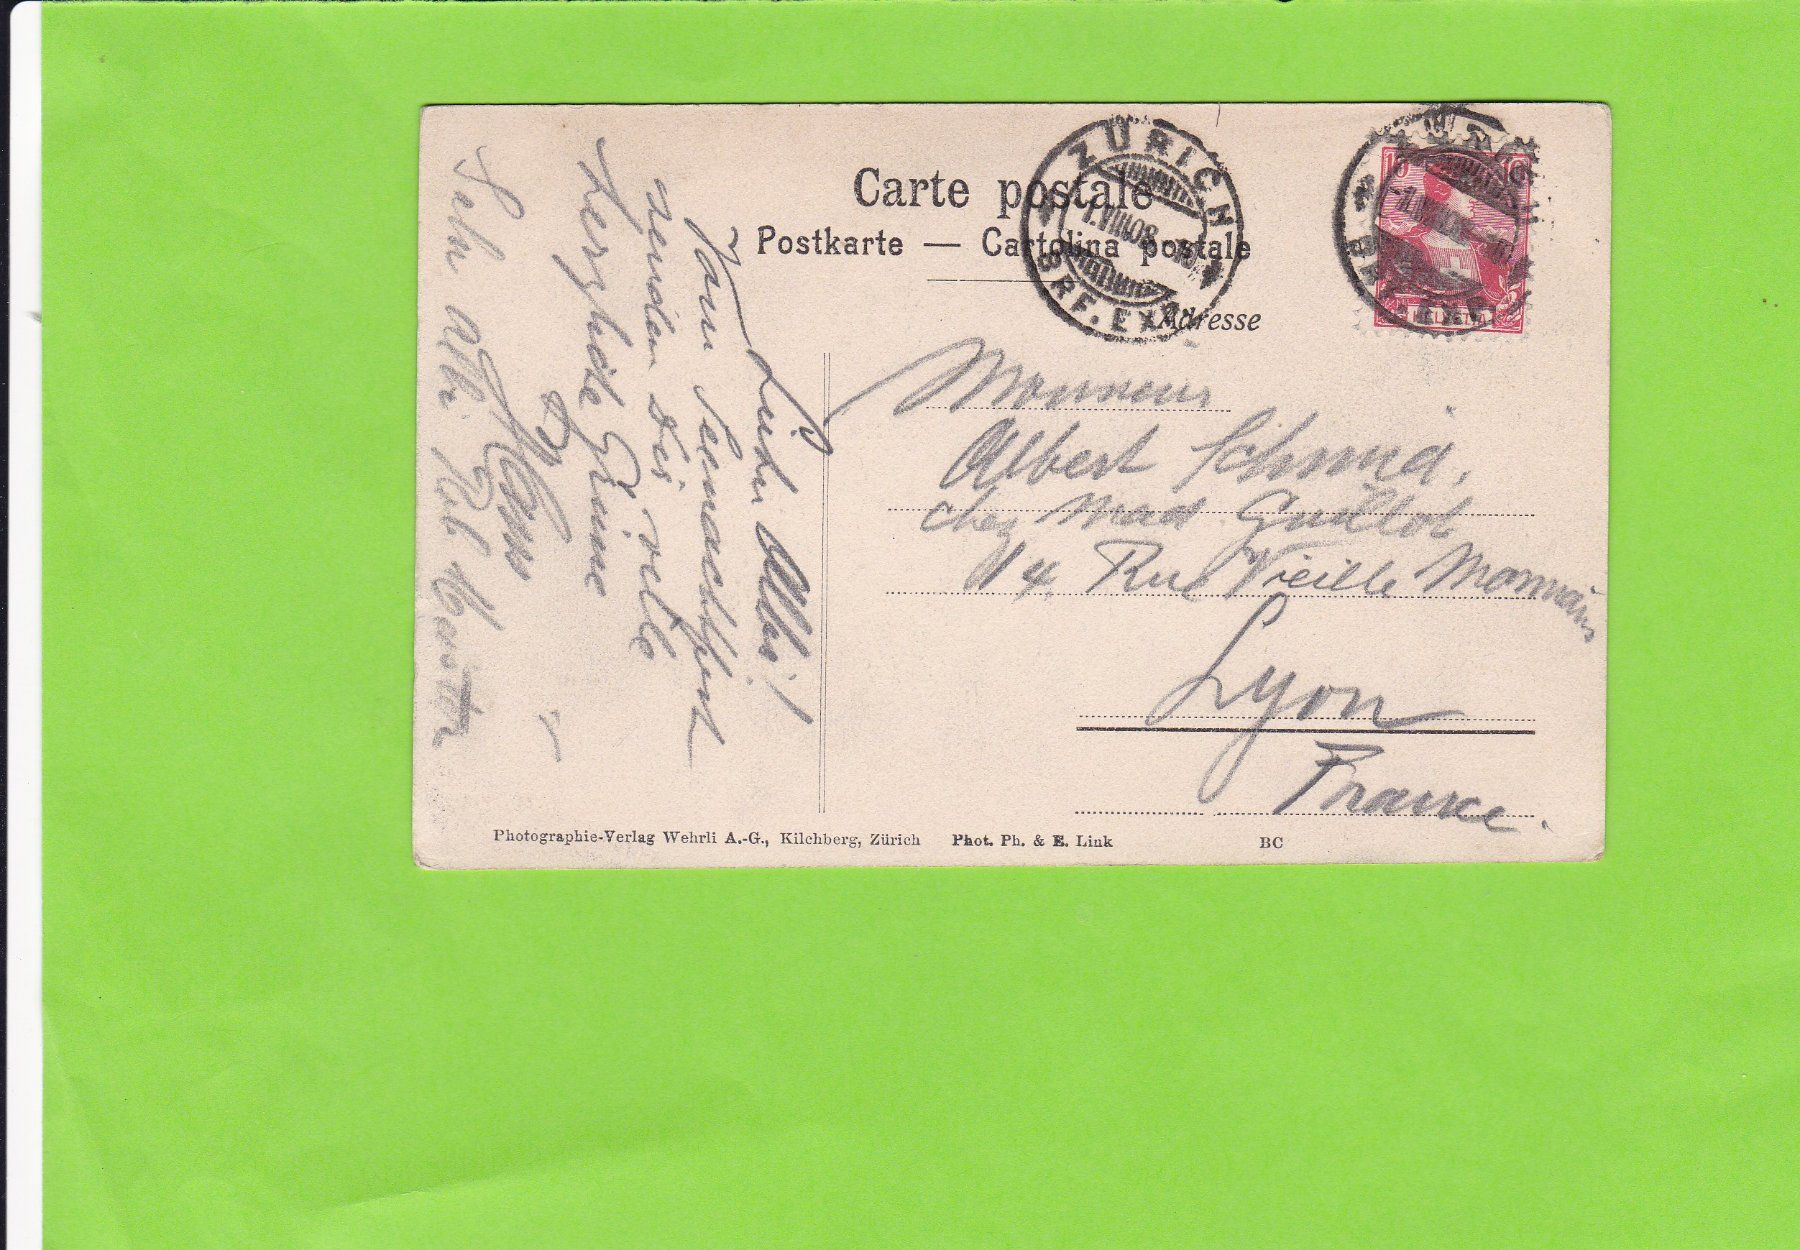 Carte postale
Postkarte — Cartolina postale
Adresse
ZÜRICH
BRF. EXP.
ZÜRICH
10 10
HELVETIA
Monsieur
Albert Schmid,
chez Mad. Guillot
14, Rue Vieille Monnaie
Lyon
France.
Lieber Albi!
Vom Seenachtfest
senden Dir viele
herzliche Grüsse
Photographie-Verlag Wehrli A.-G., Kilchberg, Zürich Phot. Ph. & E. Link BC